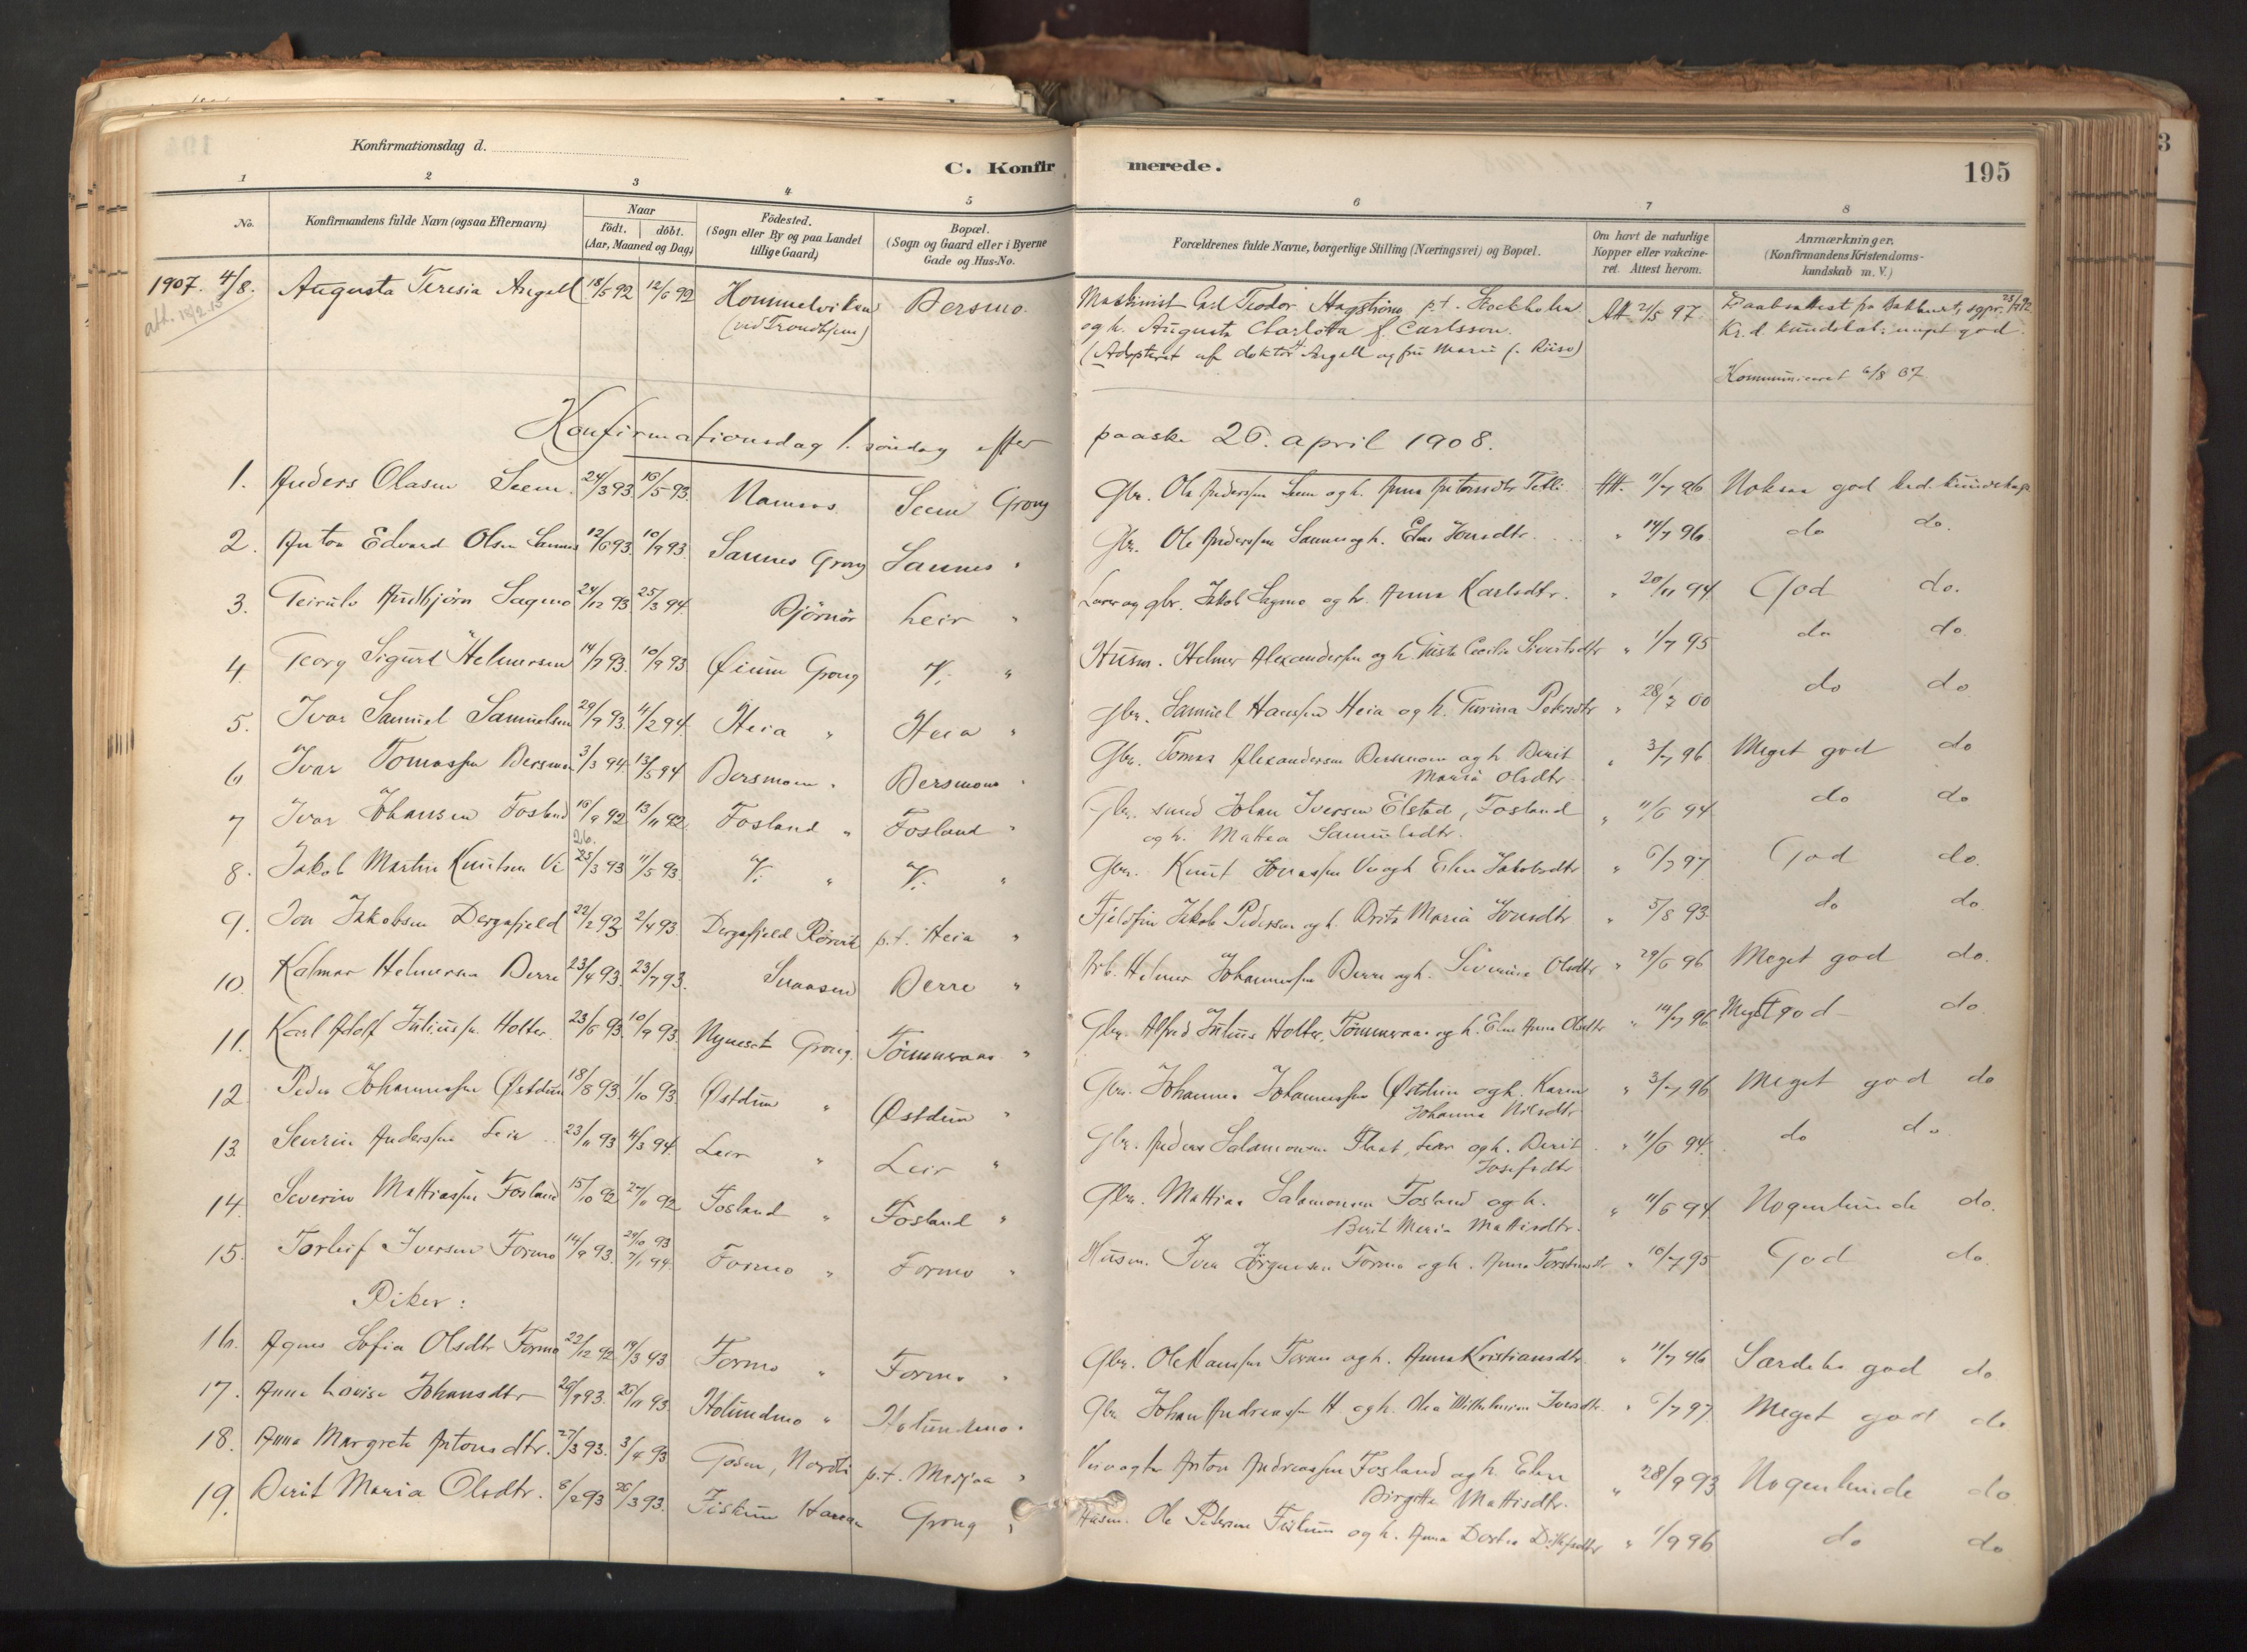 Konfirmationsdag d.
C. Konfirmerede.
195
1 2 3 4 5 6 7 8
No.
Konfirmandens fulde Navn (ogsaa Efternavn)
Naar
födt. döbt.
(Aar, Maaned og Dag)
Födested.
(Sogn eller By og paa Landet
tillige Gaard)
Bopæl.
(Sogn og Gaard eller i Byerne
Gade og Hus-No.
Forældrenes fulde Navne, borgerlige Stilling (Næringsvei) og Bopæl.
Om havt de naturlige
Kopper eller vakcine-
ret. Attest herom.
Anmærkninger.
(Konfirmandens Kristendoms-
kundskab m. V.)
1907. 4/8. Augusta Teresia Angell 18/5 92 12/6 92 Hommelviken Bersmo. Maskinist Teodor Hagström p.t. Stockholm Att. 21/5 97.
(ved Trondhjem) og h. Augusta Charlotta f. Carlsson. Kr.d. kundskab: meget god.
(Adopteret af doktor Angell og fru Marie f. Riise)
Kommuniceret 6/8 07
Konfirmationsdag 1. søndag efter paaske 26. april 1908.
1. Anders Olasen Seem. 24/3 93. 16/5 93. Namsos. Seem Grong Gbr. Ola Anderssen Seem og h. Anna Antonsdtr Att. 11/7 96 Noksaa god krd. kundskap
2. Anton Edvard Olsen Sannes 12/6 93. 10/9 93. Sannes Grong Sannes " Gbr. Ole Anderssen Sannes og h. Elen Jonsdtr. " 14/7 96. do do.
3. Geirulv Audbjörn Sagmo 24/12 93 25/3 94. Bjørnør Leir " Lærer og gbr. Jakob Sagmo og h. Anna Karlsdtr. " 20/11 94 God do.
4. Georg Sigurd Helmersen 14/7 93. 10/9 93 Øium Grong Vi " Husm. Helmer Alexandersen og h. Cecilie Sivertsdtr " 1/7 95 do do.
5. Ivar Samuel Samuelsen 29/9 93. 11/2 94. Heia " Heia " Gbr. Samuel Hanssen Heia og h. Turina Petersdtr " 28/7 00 do do
6 Ivar Tomassen Bersmoen 3/3 94. 13/5 94 Bersmoen " Bersmoen " Gbr. Tomas Alexandersen Bersmoen og h. Berit " 3/7 96. Meget god do
Maria Olsdtr.
7 Ivar Johansen Fosland 16/9 92 13/11 92. Fosland " Fosland " Gbr. smed Johan Iversen Elstad, Fosland " 11/6 94. do do
og h. Mattea Samuelsdtr.
26.
8. Jakob Martin Knutsen Vi 25/3 93 11/5 93. Vi " Vi " Gbr. Knut Jonassen Vi og h. Elen Jakobsdtr " 6/7 97 God do.
9. Jon Jakobsen Dergafjeld 22/2 93 2/4 93. Dergafjeld Rörvik p.t. Heia " Fjeldfin Jakob Pedersen og h. Brita Maria Jonsdtr " 5/8 93. do do.
10. Kalmar Helmersen Berre 23/4 93. 23/7 93. Snaasen Berre " Arb. Helmer Johannessen Berre og h. Severine Olsdtr " 29/6 96 Meget god do.
11. Karl Adolf Juliussen Holter. 23/6 93. 10/9 93. Nyneset Grong. Tömmeraas " Gbr. Alfred Julius Holter, Tömmeraas og h. Elen Anna Olsdtr " 14/7 96. Meget god do.
12. Peder Johannessen Østdun 18/8 93. 1/10 93. Østdun " Østdun " Gbr. Johannes Johannessen Østdun og h. Karen " 3/7 96 Meget god do
Johanna Nilsdtr.
13. Severin Anderssen Leir 23/11 93 4/3 94. Leir " Leir " Gbr. Anders Salamonsen Flaat, Leir og h. Berit " 11/6 94. do do
Josefsdtr
14. Severin Mattiassen Fosland 15/10 92 27/11 92 Fosland " Fosland " Gbr. Mattias Salamonsen Fosland og h. " 11/6 94 Nogenlunde do.
Berit Maria Mattisdtr.
15. Torleif Iversen Formo 14/9 93. 29/10 93 7/1 94. Formo " Formo " Husm. Iver Jörgensen Formo og h. Anna Torstensdtr " 10/7 95 God do.
Piker:
16. Agnes Sofia Olsdtr Formo 22/12 92 19/3 93 Formo " Formo " Gbr. Ole Hanssen Formo og h. Anna Kristiansdtr. " 11/7 96 Særdeles god do
17. Anna Lovisa Johansdtr 29/9 93. 26/11 93. Holundmo " Holundmo " Gbr Johan Andreassen H og h. Olea Wilhelmine Iversdtr. " 6/7 97 Meget god do
18. Anna Margrete Antonsdtr. 27/3 93. 3/4 93 Gosen, Nordli p.t. Medjaa " Veivogter Anton Andreassen Fosland og h. Elen " 28/9 93 Nogenlunde do
Birgitta Mattisdtr.
19. Berit Maria Olsdtr. 8/2 93 26/3 93. Fiskum Harran Grong " Husm. Ole Petersen Fiskum og h. Anna Dortea " 1/9 96 do do